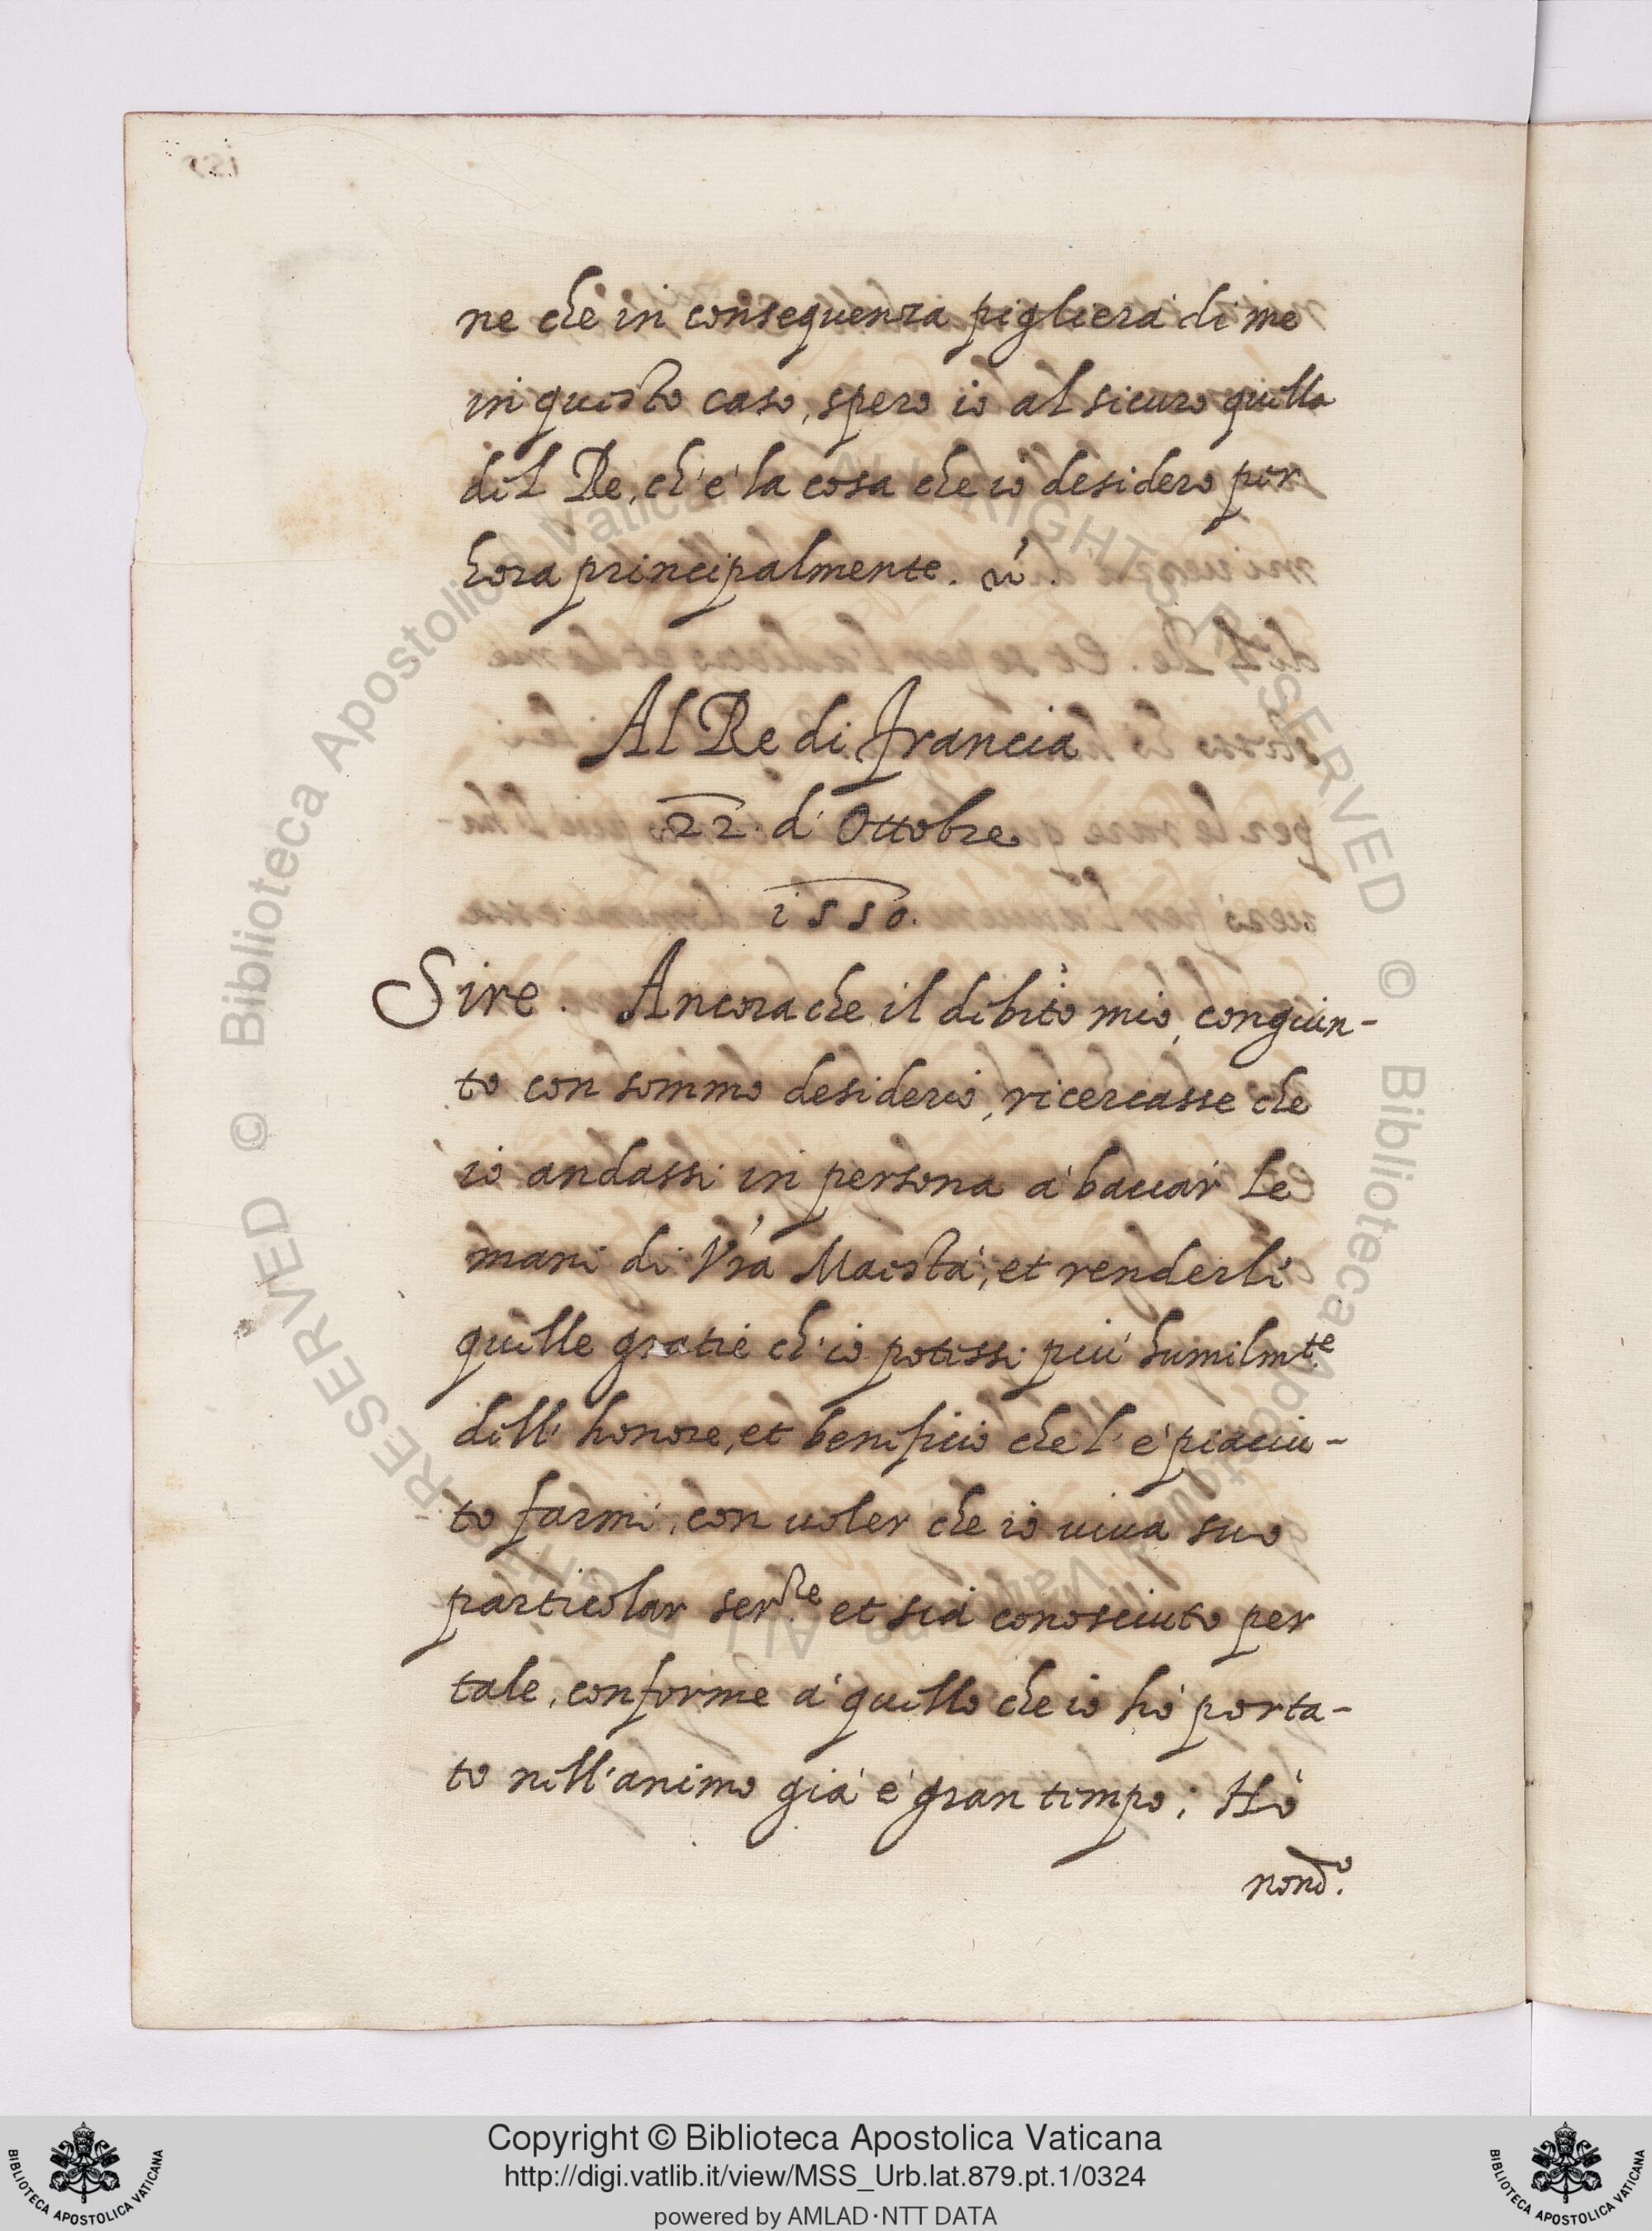 ne che in consequenza piglierà di me
in questo caso, spero io al sicuro quella
del Re, ch'è la cosa che io desidero per
hora principalmente.
Al Re di Francia
22. d'Ottobre
1550.
Sire. Ancora che il debito mio, congiun-
to con sommo desiderio, ricercasse che
io andassi in persona à baciar le
mani di Vra Maestà, et renderli
quelle gratie ch'io potessi più humilmte
dell'honore, et beneficio che l'è piaciu-
to farmi, con voler che io viva suo
particolar serre et sia conosciuto per
tale, conforme à quello che io hò porta-
to nell'animo già è gran tempo; Hò
nondo.
Copyright © Biblioteca Apostolica Vaticana
http://digi.vatlib.it/view/MSS_Urb.lat.879.pt.1/0324
powered by AMLAD·NTT DATA
BIBLIOTECA APOSTOLICA VATICANA
BIBLIOTECA APOSTOLICA VATICANA
© Biblioteca Apostolica Vaticana ALL RIGHTS RESERVED
© Biblioteca Apostolica Vaticana ALL RIGHTS RESERVED